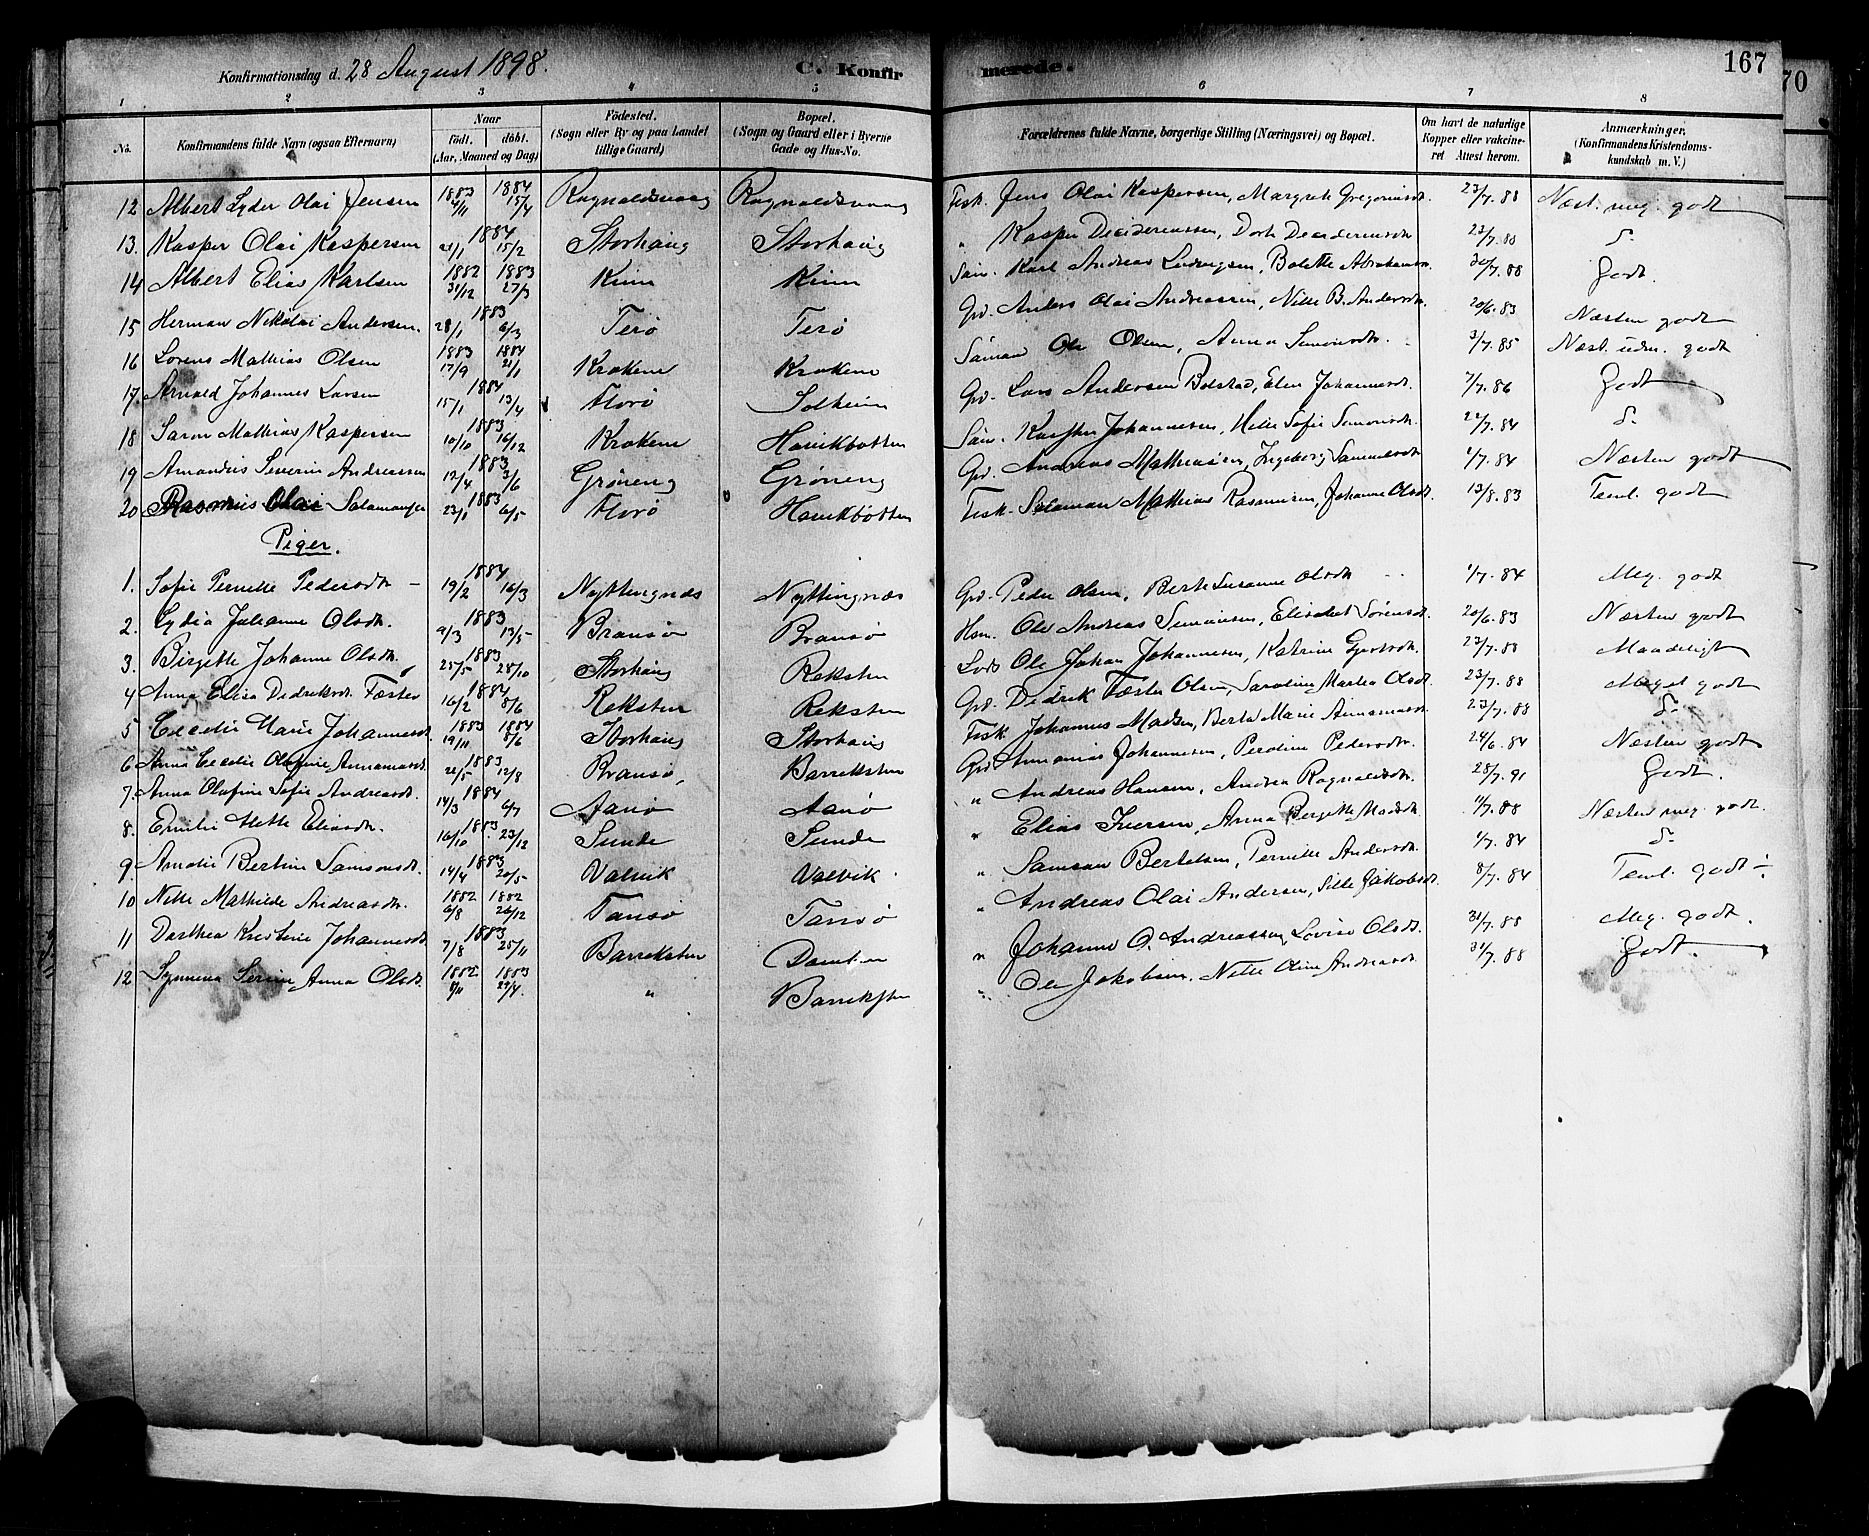 Konfirmationsdag d. 28 August 1898. C. Konfirmerede. 167
70
1 2 3 4 5 6 7 8
No. Konfirmandens fulde Navn (ogsaa Efternavn) Naar födt. döbt. (Aar, Maaned og Dag) Födested. (Sogn eller By og paa Landet tillige Gaard) Bopæl. (Sogn og Gaard eller i Byerne Gade og Hus-No. Forældrenes fulde Navne, borgerlige Stilling (Næringsvei) og Bopæl. Om havt de naturlige Kopper eller vakcineret Attest herom. Anmærkninger, (Konfirmandens Kristendomskundskab m. V.)
12 Albert Lyder Olai Jensen 1883 4/11 1884 15/4 Ragnaldsvaag Ragnaldsvaag Fisk. Jens Olai Kaspersen, Margrete Gregoriusdt. 23/7.88 Næst. meg. godt
13. Kasper Olai Kaspersen 1884 21/1 15/2 Storhaug Storhaug " Kasper Desideriussen, Dorte Desideriusdt 23/7.88 d.
14 Albert Elias Karlsen 1882 31/12 1883 27/3 Kinn Kinn Karl Andreas Ludvigsen, Bolette Abrahamsdt. 30/7.88 Godt.
15 Herman Nikolai Andersen. 1883 28/1 6/3 Terø Terø Grd. Anders Olai Andreassen, Nille B. Andersdt. 20/6.83 Næsten godt
16 Lorens Mathias Olsen 1883 17/9 1884 21/1 Krokene Krokene Ole Olsen, Anna Simonsdt. 3/7.85 Næst. udm. godt
17. Arnold Johannes Larsen 1884 15/1 13/4 Florø Solheim Grd. Lars Andersen Bolstad, Elen Johannesdt. 7/7.86 Godt
18 Saron Mathias Kaspersen 1883 10/10 16/12 Krokene Havikbotten Johannesen, Sofie Simonsdt. 24/7.84 d.
19 Amandus Severin Andreassen 1883 12/4 3/6 Grøneng Grøneng Grd. Andreas Mathiassen, Ingeborg Samuelsdt 1/7.84 Næsten godt
20 Rasmus Olai Salamonsen 1883 23/1 6/5 Florø Havikbotten Fisk. Salaman Mathias Rasmussen, Johanne Olsdt. 13/8.83 Teml. godt
Piger.
1. Sofie Pernille Pedersdt. 1884 19/2 16/3 Nyttingnæs Nyttingnæs Grd. Peder Olsen, Berte Susanne Olsdt 1/7.84 Meg. godt
2. Lydia Juliane Olsdt. 1883 9/3 13/5 Bransø Bransø Hsm. Ole Andreas Simonsen, Elisabet Sørensdt. 20/6.83 Næsten godt
3. Birgitte Johanne Olsdt. 1883 25/5 28/10 Storhaug Reksten Lods Ole Johan Johannesen, Katrine 23/7.88 Maadeligt
4 Anna Elisa Didriksdt. Fæstø 1884 16/2 8/6 Reksten Reksten Grd. Didrik Fæstø Olsen, Saroline Martea Olsdt. 23/7.88 Meget godt
5 Cecilie Marie Johannesdt. 1883 19/11 1884 8/6 Storhaug Storhaug Fisk Johannes Madsen, Berte Marie 23/7.88 d.
6 Anna Cecilie Olofine Annaniasdt. 1883 21/5 12/8 Bransø, Barreksten Grd Annanias Johannesen, Peroline Pedersdt. 24/6.84 Næsten godt
7. Anna Olafine Sofie Andreasdt. 1884 14/3 6/7 Aanø Aanø " Andreas Hansen, Andrea Ragnaldsdt. 28/7.91 Godt.
8. Emilie Mette Eliasdt. 1883 16/10 23/12 Sunde Sunde " Elias Iversen, Anna Birgitte Madsdt. 11/7.88 Næsten meg. godt.
9 Amalie Bertine Samsonsdt. 1883 14/4 20/5 Valvik Valvik. " Samson Bertelsen, Pernille Andersdt. 1/7.84 d.
10 Nille Mathilde Andreasdt. 1882 6/8 1882 26/12 Tansø Tansø " Andreas Olai Andersen, Sille Jakobsdt. 8/7.84 Teml. godt ÷
11 Dorthea Kristine Johannesdt. 1883 7/8 25/11 Barreksten " Johannes O. Andreassen, Lovise Olsdt. 31/7.88 Meg. godt.
12 Serine Anna Olsdt. 1882 1883 29/4. " Barreksten " Ole Jakobsen, Nille Oline Andreasdt. 31/7.88 Godt.